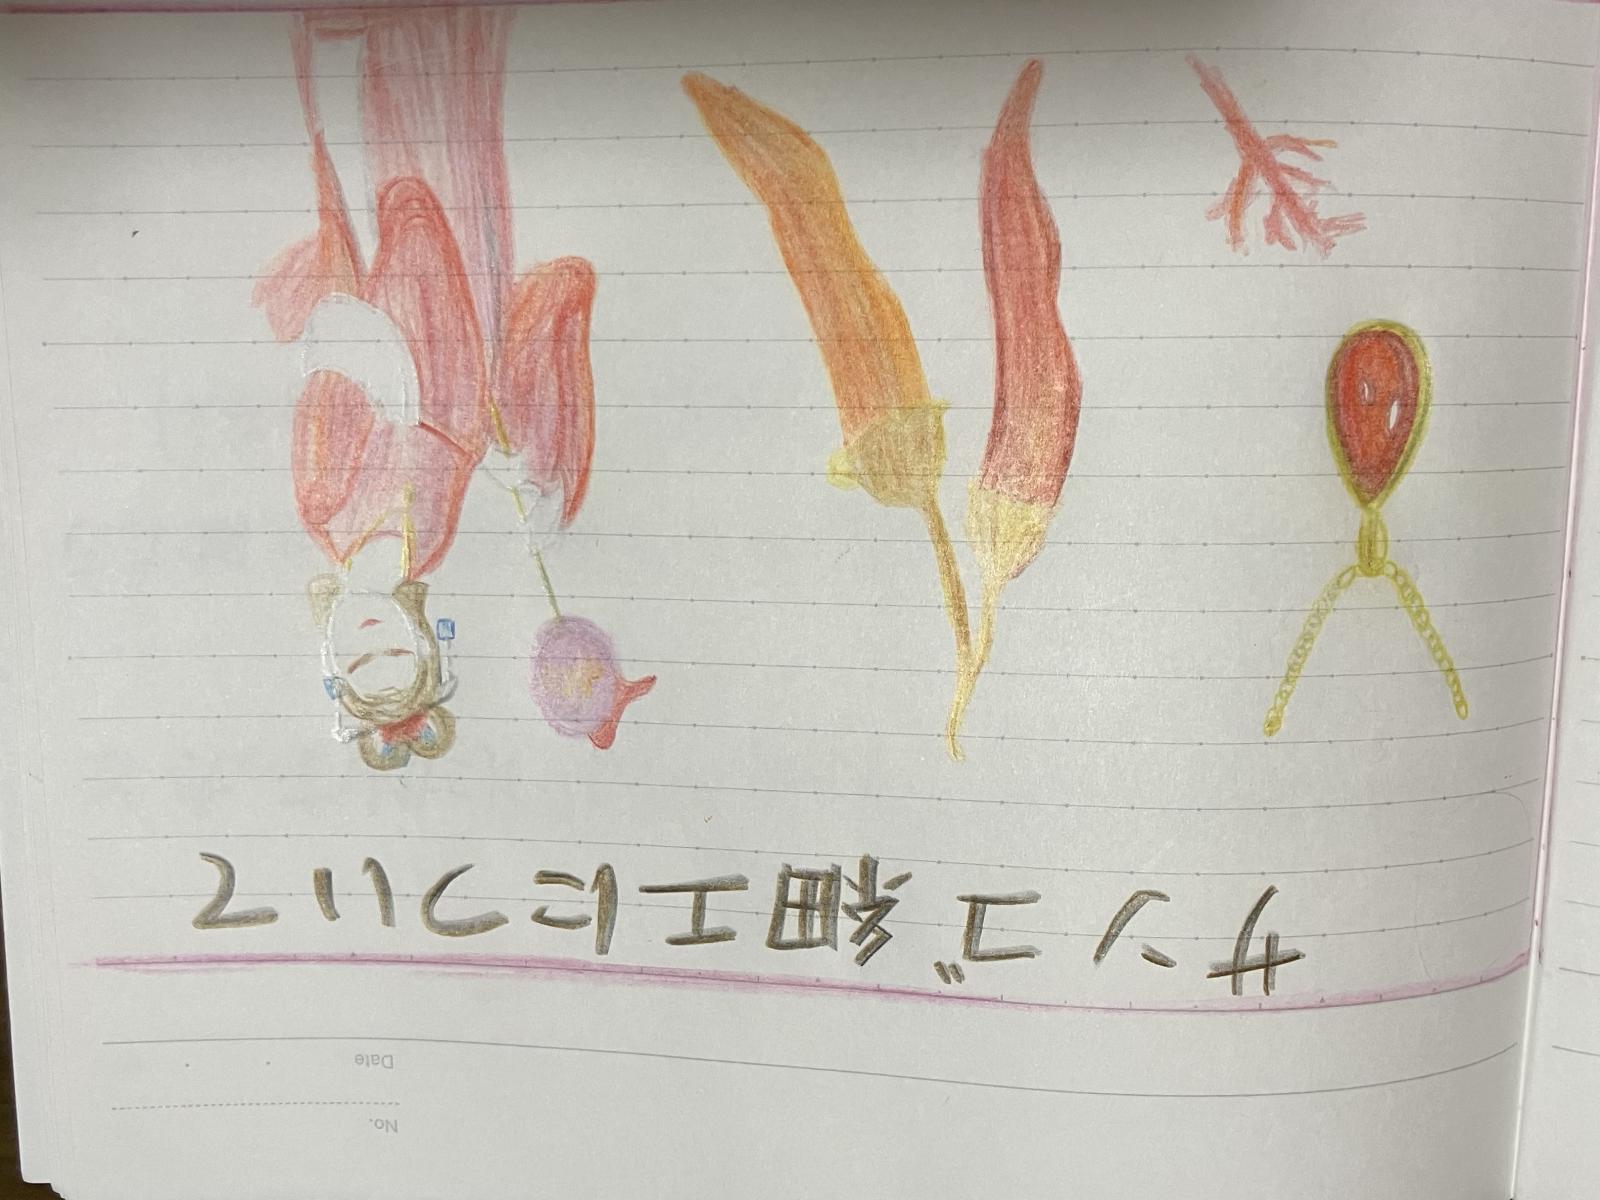 No.
Date
サンゴ細工について